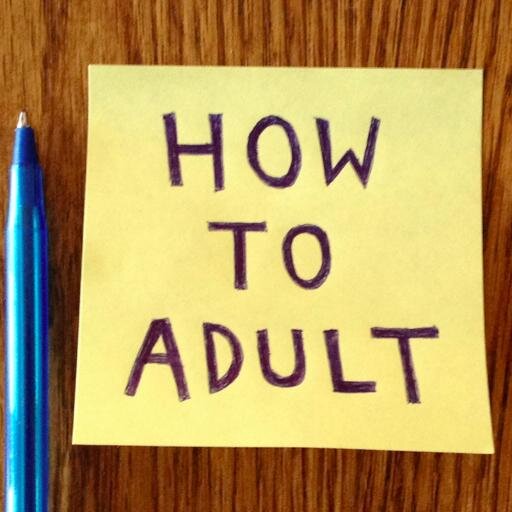 HOW
TO
ADULT